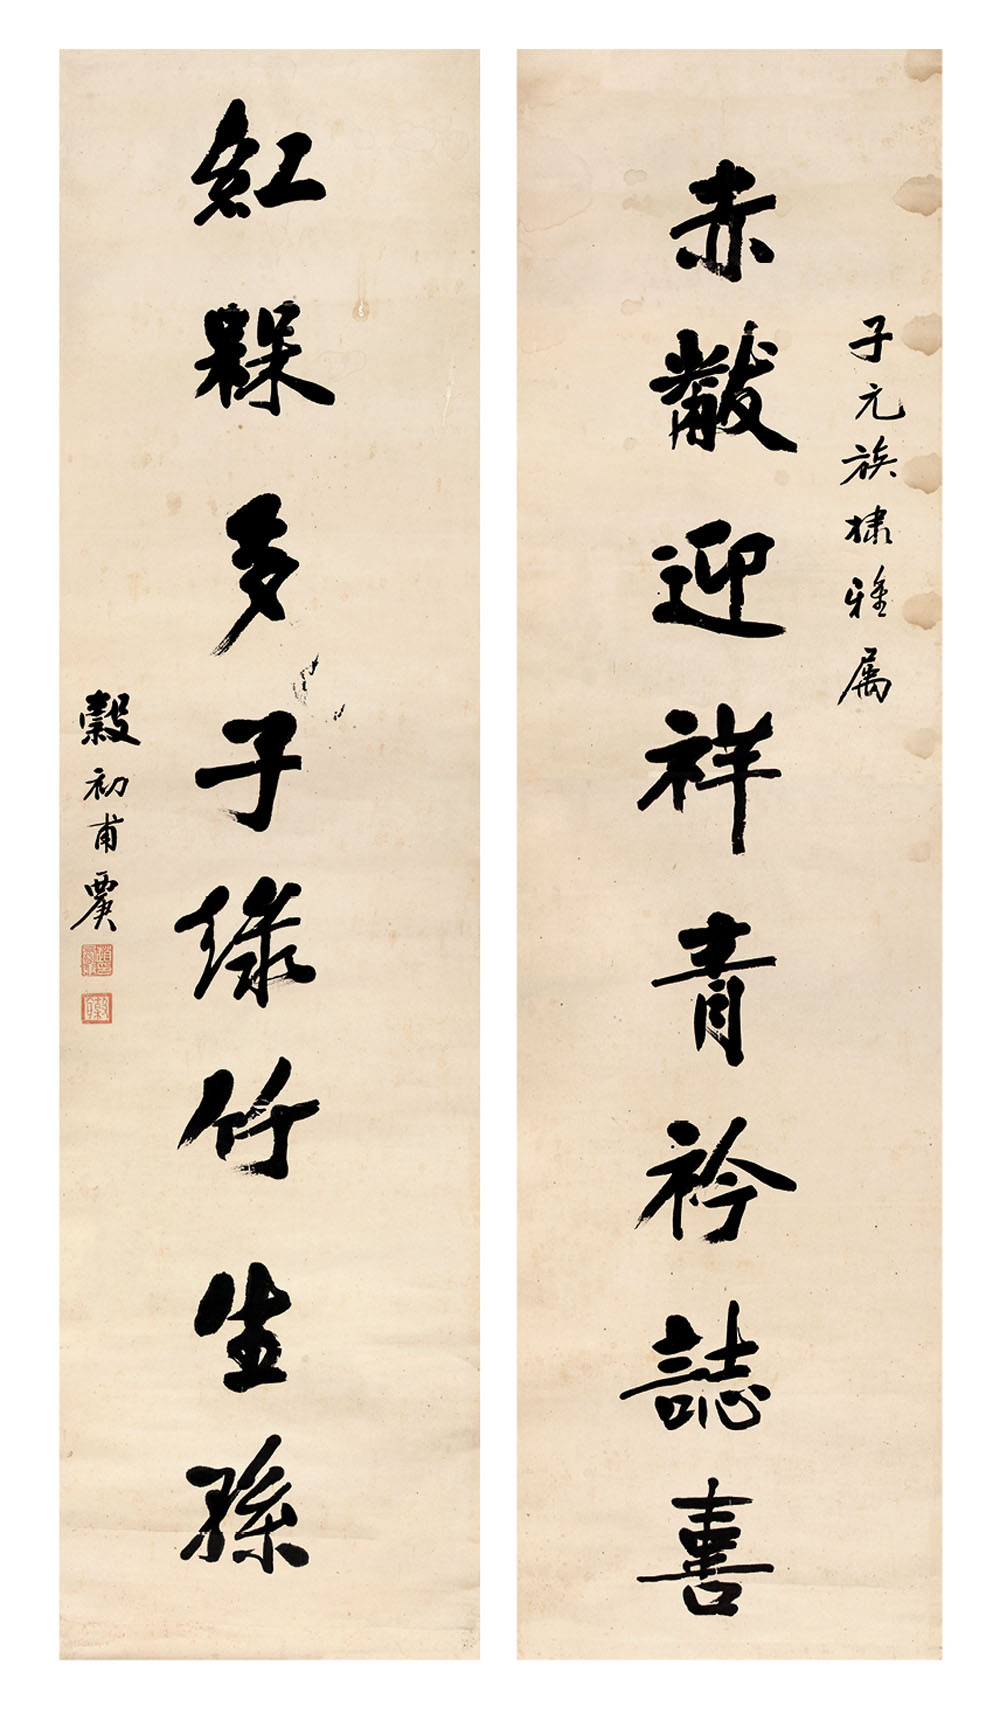 子元族棣雅属
赤黻迎祥青衿誌喜
紅槑多子綠竹生孫
穀初甫